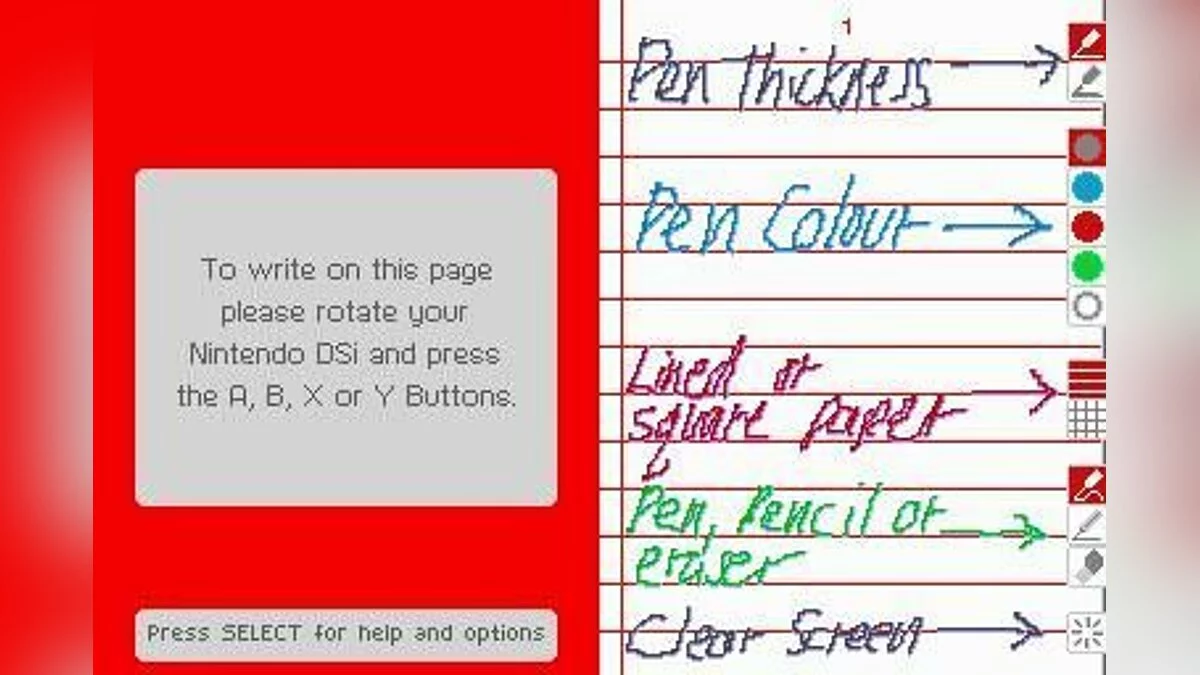 To write on this page
please rotate your
Nintendo DSi and press
the A, B, X or Y Buttons.
Press SELECT for help and options
1
Pen Thickness
Pen Colour
Lined or
square paper
Pen, Pencil or
eraser
Clear Screen